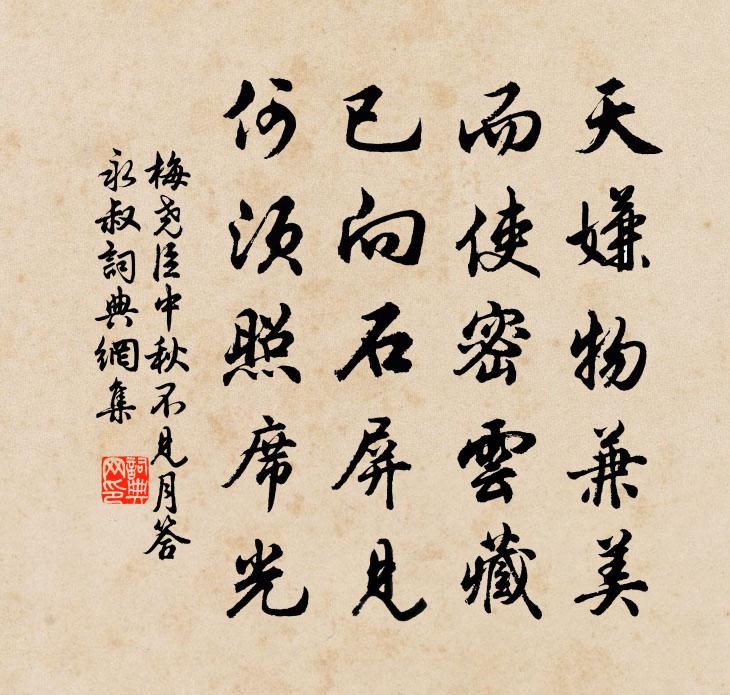 天嫌物兼美
而使密雲藏
已向石屏見
何須照席光
梅堯臣中秋不見月答
永叔詞典網集
詞典
网印